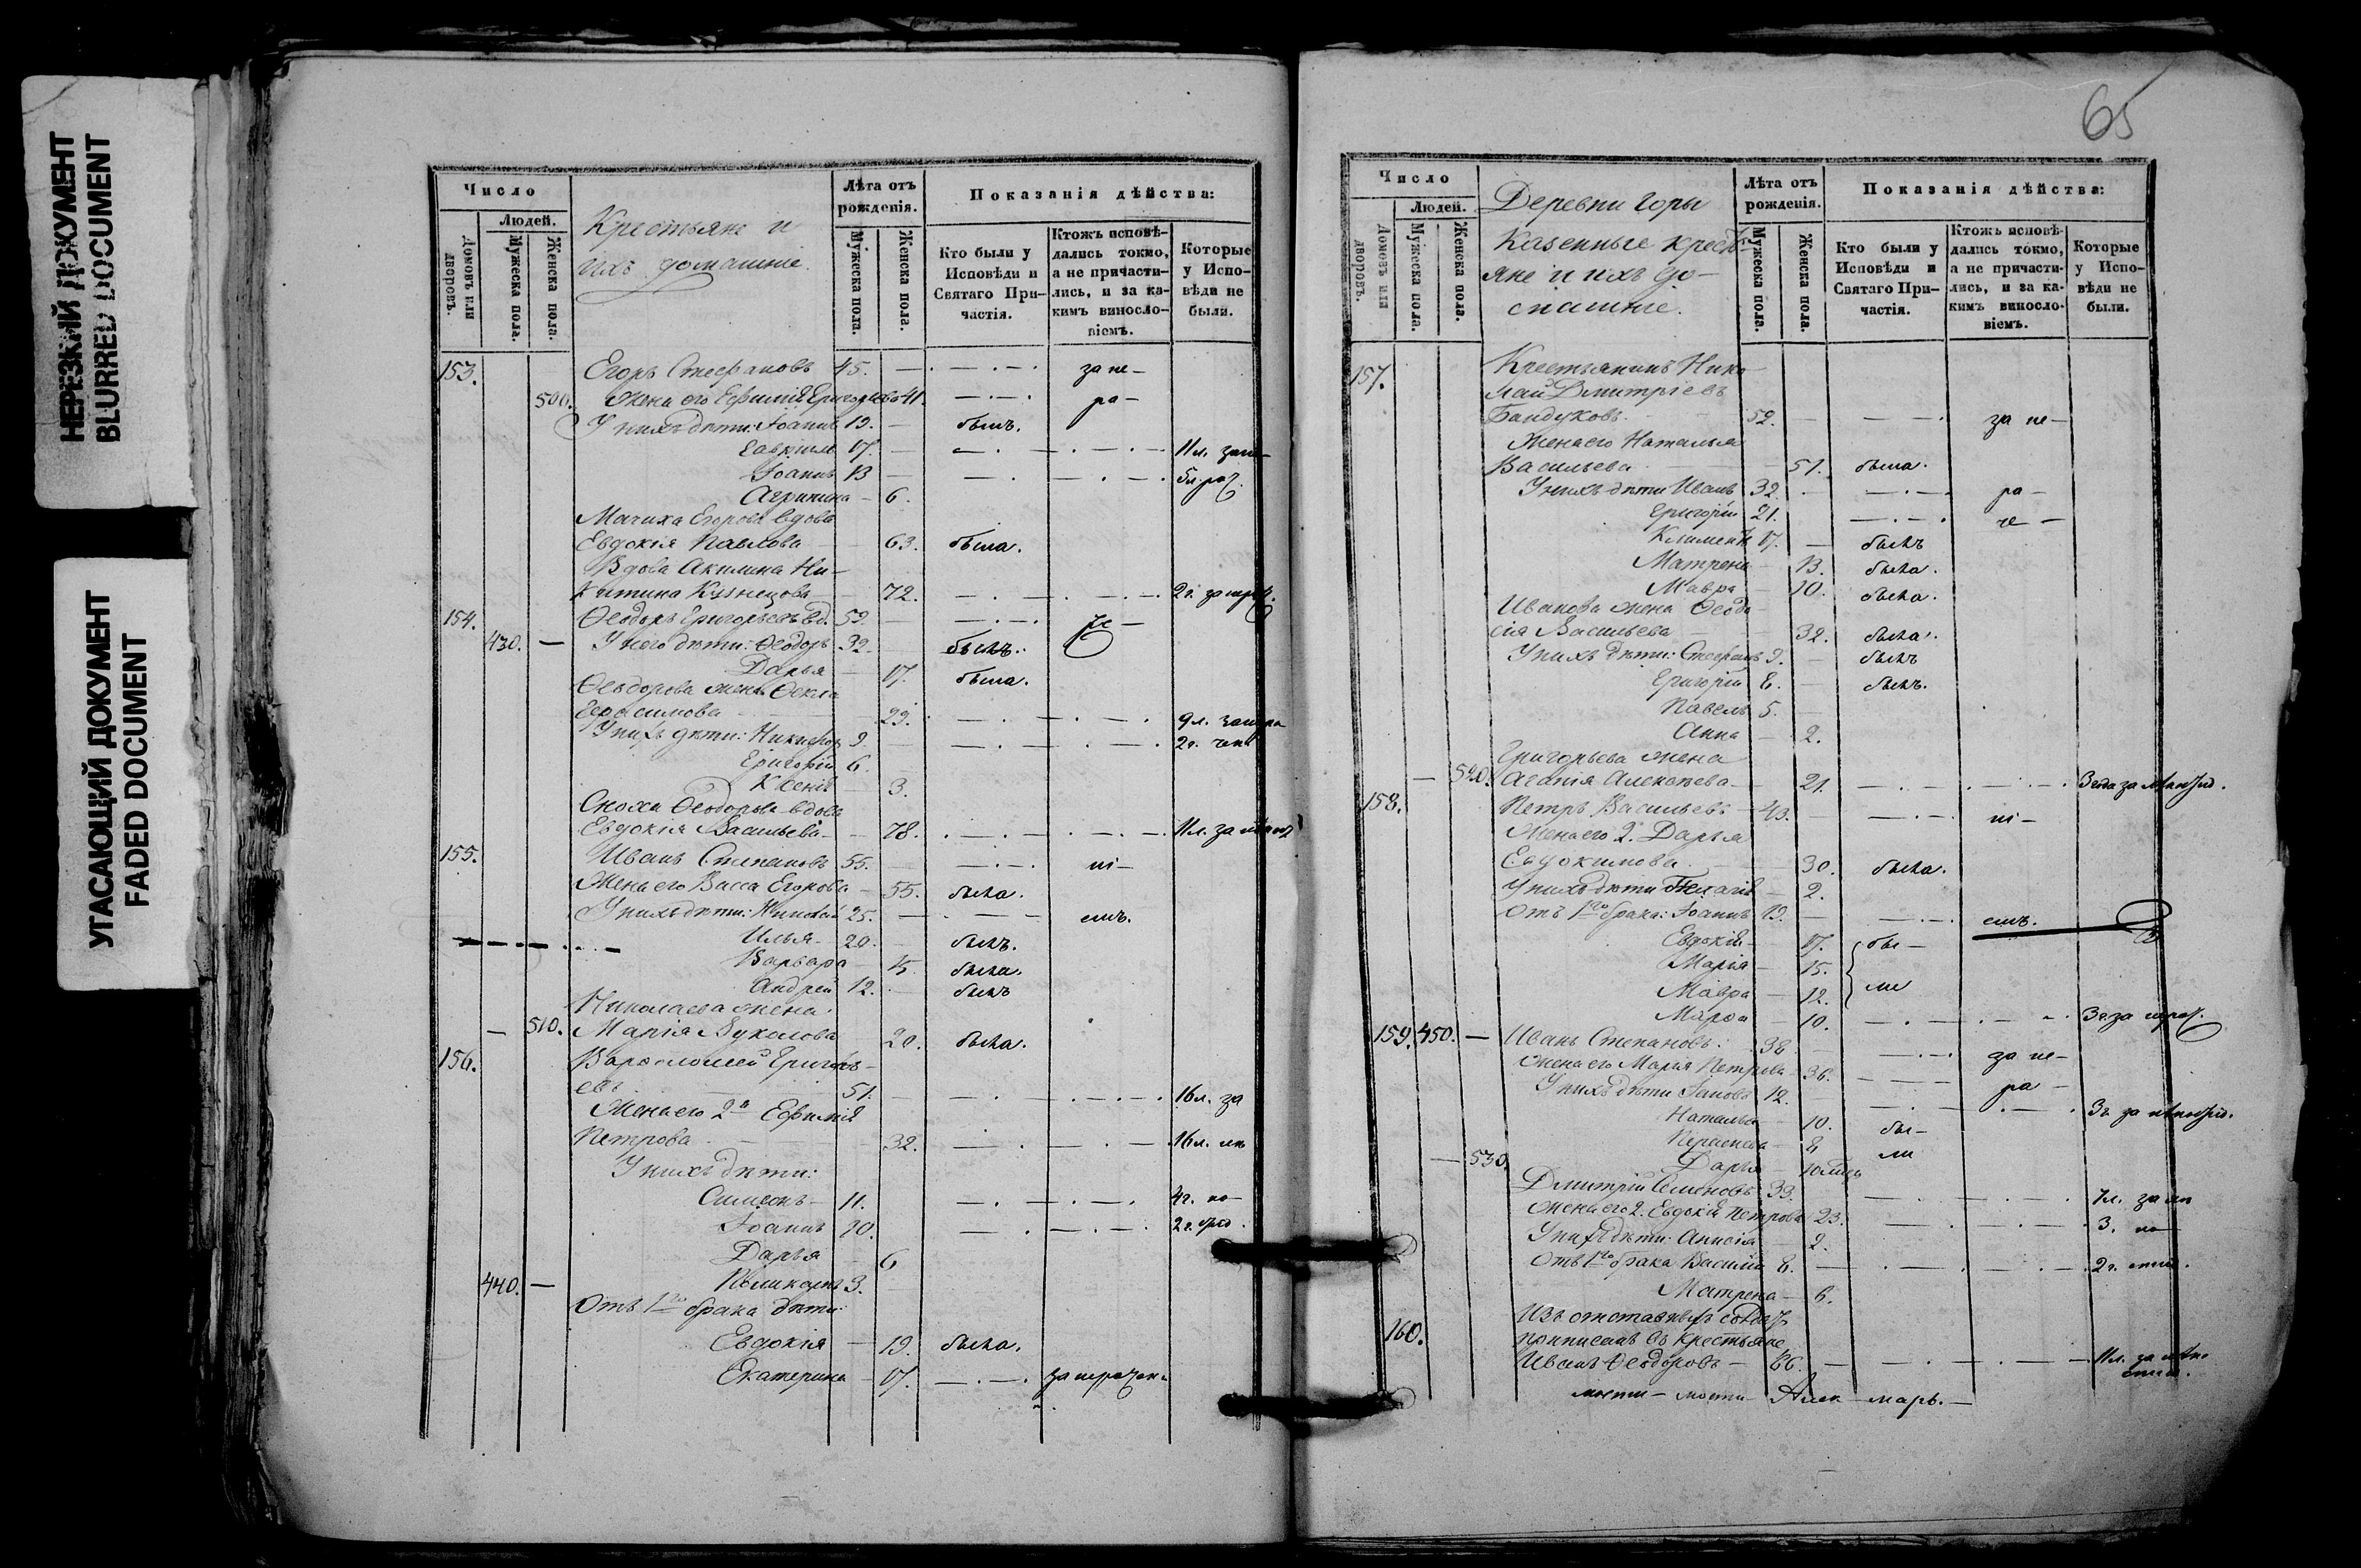 НЕРЕЗКИЙ ДОКУМЕНТ
BLURRED DOCUMENT
УГАСАЮЩИЙ ДОКУМЕНТ
FADED DOCUMENT
Число
Людей.
Домовъ или дворовъ.
Мужеска пола.
Женска пола.
Крестьяне и
ихъ домашніе.
Лѣта отъ рожденія.
Мужеска пола.
Женска пола.
Показанія дѣйства:
Кто были у Исповѣди и Святаго Причастія.
Ктожъ исповѣдались токмо, а не причастились, и за какимъ винословіемъ.
Которые у Исповѣди не были.
153. Егоръ Стефановъ 45. — за не—
500. Жена его Ефимія Григорьева 41. — ра—
У нихъ дѣти: Іоаннъ 19. — былъ.
17. — 11 л.
Іоаннъ 13 —
Агрипина — 6.
Мачиха Егорова вдова
Евдокія Павлова — 63. была.
Вдова Акилина Ни-
китина Кузнецова — 72. — 2 г.
154. Ѳеодоръ Григорьевъ вд. 59. —
430. — У него дѣти: Ѳеодоръ 32. былъ.
Дарья — 17. была.
Ѳеодорова жена Ѳекла
Герасимова — 29. — 9 л.
У нихъ дѣти: Никифоръ 9. — 2 г.
Григорій 6.
Ксенія — 3.
Сноха Ѳеодорова вдова
Евдокія Васильева — 78. — 11 л. за
155. Иванъ Степановъ 55. — ні—
Жена его Васса Егорова — 55. была.
У нихъ дѣти: Николай 25. — емъ.
Илья — 20. былъ.
Варвара — 15. была.
Андрей 12. былъ
Николаева жена
— 510. Марія Вуколова 20. была.
156. Варѳоломей Григорь-
евъ 51. — 16 л. за
Жена его 2я Ефимія
Петрова — 32. — 16 л.
У нихъ дѣти:
Симеонъ — 11. — 4 г.
Іоаннъ 10. — 2 г.
Дарья — 6
440. — 3.
Отъ 1го брака дѣти:
Евдокія — 19. была.
Екатерина — 17. —
65
Число
Людей.
Домовъ или дворовъ.
Мужеска пола.
Женска пола.
Деревни Горы
Казенные кресть-
яне и ихъ до-
машніе.
Лѣта отъ рожденія.
Мужеска пола.
Женска пола.
Показанія дѣйства:
Кто были у Исповѣди и Святаго Причастія.
Ктожъ исповѣдались токмо, а не причастились, и за какимъ винословіемъ.
Которые у Исповѣди не были.
157. Крестьянинъ Нико-
лай Дмитріевъ
Бандуковъ 52. — за не—
Жена его Наталья
Васильева — 51. была.
У нихъ дѣти Иванъ 32. — ра—
Григорій 21. — че—
Климентъ 17. — былъ
Матрена — 13. была.
Мавра — 10. была.
Иванова жена Ѳеодо-
сія Васильева — 32. была.
У нихъ дѣти: Стефанъ 9. — былъ
Григорій 8. — былъ.
Павелъ 5.
Анна — 2.
Григорьева жена
— 520. Агапія Алексѣева — 21. —
158. Петръ Васильевъ — 49. — ні—
Жена его 2. Дарья
Евдокимова. — 30. была.
У нихъ дѣти Пелагія — 2.
Отъ 1го брака: Іоаннъ 19. — емъ.
Евдокія — 17. бы—
Марія — 15.
Мавра — 12. ли
Марѳа — 10. —
159. 450. — Иванъ Степановъ. 38. — за не—
Жена его Марія Петрова 36. — ра—
У нихъ дѣти 12. — 3 г. за
Наталья — 10. бы—
8 ли
— 530. Дарья — 10 мѣсяц
Дмитрій Семеновъ 39. — 7 л. за
Жена его 2. Евдокія Петрова 23. — 3.
У нихъ дѣти: Анисія — 2.
Отъ 1го брака Василій 8. — 2 г.
Матрена — 6.
Изъ отставныхъ солдатъ
160. приписанъ въ крестьяне
Иванъ Ѳеодоровъ — 66. — 11 л. за